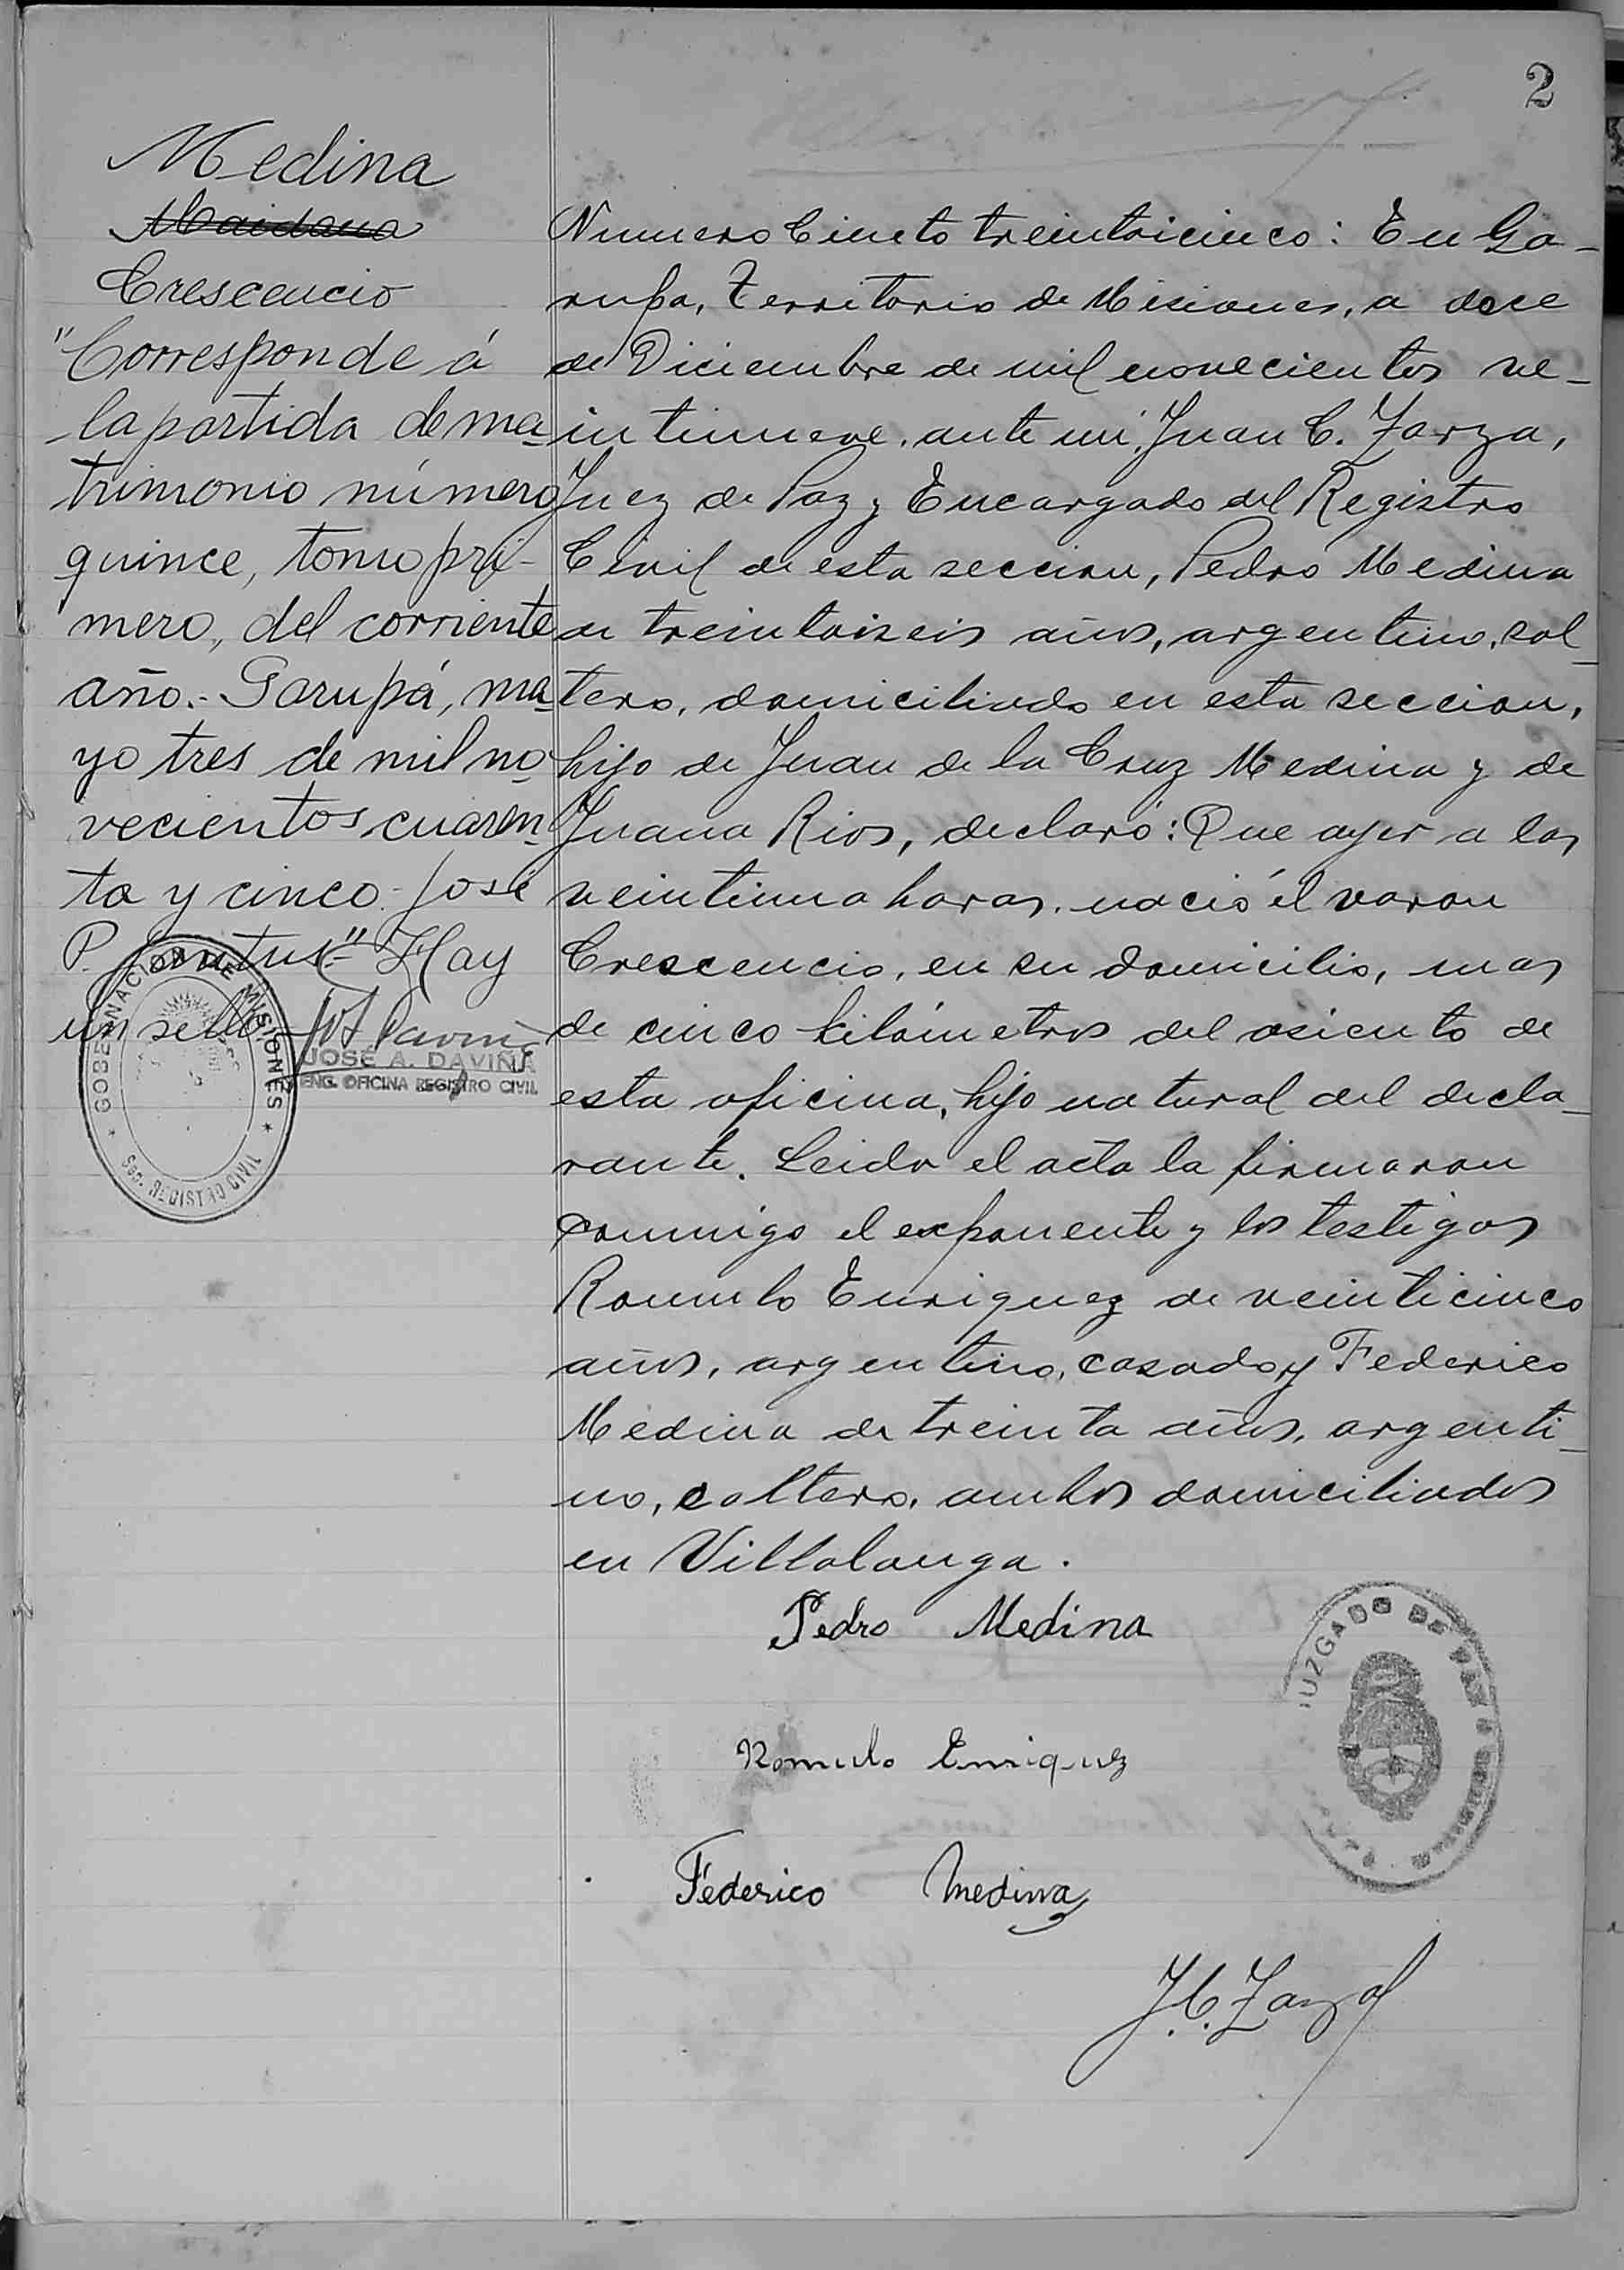 2
Medina
Maidana
Crescencio
"Corresponde á
la partida de ma-
trimonio número
quince, tomo pri-
mero, del corriente
año.- Garupá, ma-
yo tres de mil no-
vecientos cuaren-
ta y cinco.- José
P. "- Hay
un sello-
JOSÉ A. DAVIÑA
ENC. OFICINA REGISTRO CIVIL
GOBERNACION DE MISIONES
Sec. REGISTRO CIVIL
Numero Ciento treintaicinco: En Ga-
rupa, Territorio de Misiones, a doce
de Diciembre de mil novecientos ve-
intinueve, ante mí, Juan C. Zarza,
Juez de Paz y Encargado del Registro
Civil de esta seccion, Pedro Medina
de treintaiseis años, argentino, sol-
tero, domiciliado en esta seccion,
hijo de Juan de la Cruz Medina y de
Juana Rios, declaró: Que ayer a las
veintiuna horas, nació el varon
Crescencio, en su domicilio, mas
de cinco kilómetros del asiento de
esta oficina, hijo natural del decla-
rante. Leida el acta la firmaron
conmigo el exponente y los testigos
Romulo Enriquez de veinticinco
años, argentino, casado y Federico
Medina de treinta años, argenti-
no, soltero, ambos domiciliados
en Villalonga.
Pedro Medina
Romulo Enriquez
Féderico Medina
J. C. Zarza
JUZGADO DE PAZ